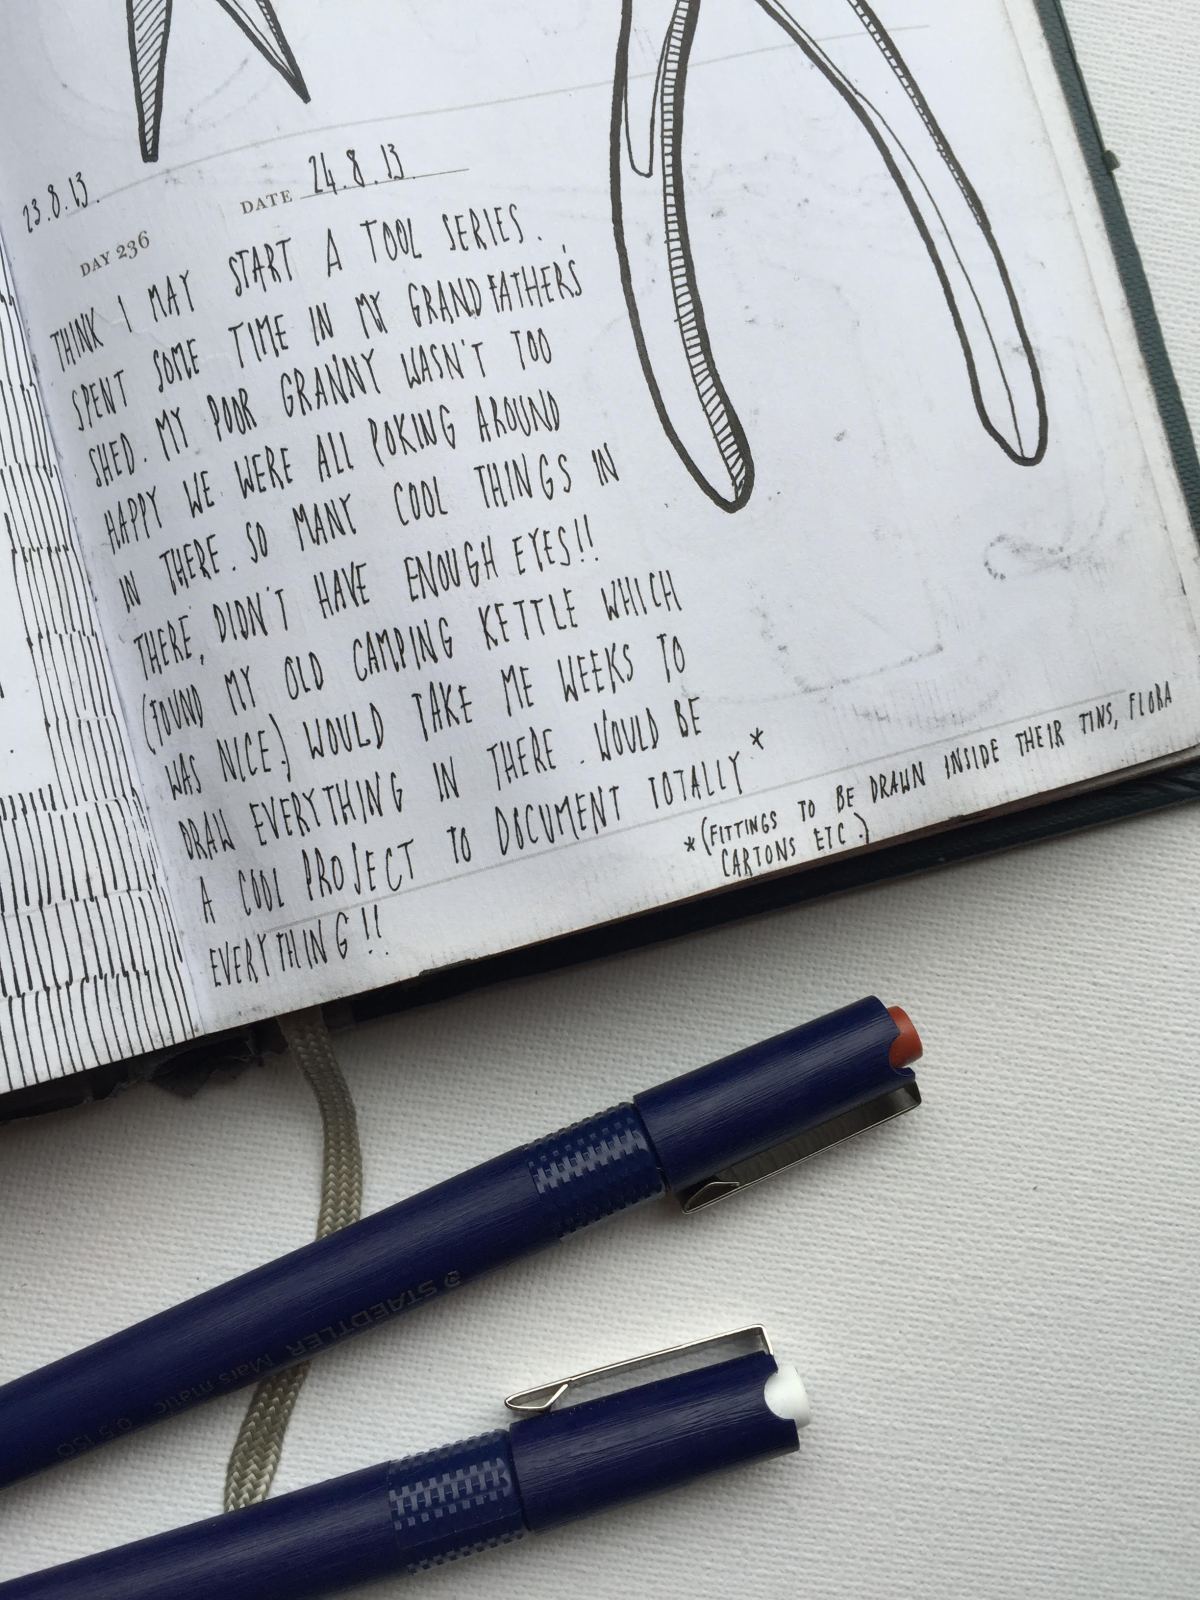 23.8.13.
DATE 24.8.13
DAY 236
THINK I MAY START A TOOL SERIES.
SPENT SOME TIME IN MY GRANDFATHER'S
SHED. MY POOR GRANNY WASN'T TOO
HAPPY WE WERE ALL POKING AROUND
IN THERE. SO MANY COOL THINGS IN
THERE, DIDN'T HAVE ENOUGH EYES!!
(FOUND MY OLD CAMPING KETTLE WHICH
WAS NICE.) WOULD TAKE ME WEEKS TO
DRAW EVERYTHING IN THERE. WOULD BE
A COOL PROJECT TO DOCUMENT TOTALLY*
EVERYTHING!!
*(FITTINGS TO BE DRAWN INSIDE THEIR TINS, FLORA
CARTONS ETC.)
STAEDTLER Mars matic 0.5 ISO